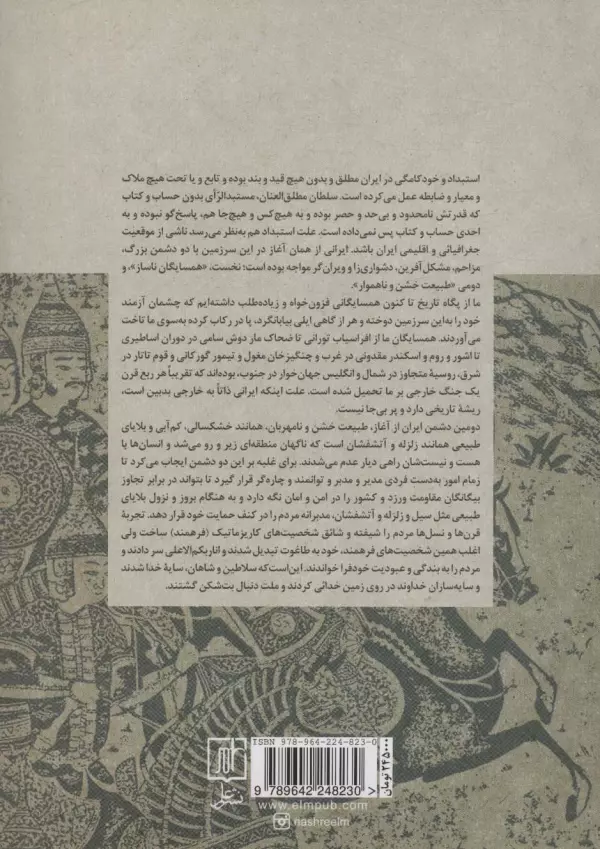 استبداد و خودکامگی در ایران مطلق و بدون هیچ قید و بند بوده و تابع و یا تحت هیچ ملاک
و معیار و ضابطه عمل می‌کرده است. سلطان مطلق‌العنان، مستبدالرّأی بدون حساب و کتاب
که قدرتش نامحدود و بی‌حد و حصر بوده و به هیچ‌کس و هیچ‌جا هم، پاسخ‌گو نبوده و به
احدی حساب و کتاب پس نمی‌داده است. علت استبداد هم به‌نظر می‌رسد ناشی از موقعیت
جغرافیائی و اقلیمی ایران باشد. ایرانی از همان آغاز در این سرزمین با دو دشمن بزرگ،
مزاحم، مشکل‌آفرین، دشواری‌زا و ویران‌گر مواجه بوده است؛ نخست، «همسایگان ناساز»، و
دومی «طبیعت خشن و ناهموار».
ما از پگاه تاریخ تا کنون همسایگانی فزون‌خواه و زیاده‌طلب داشته‌ایم که چشمان آزمند
خود را به‌این سرزمین دوخته و هر از گاهی ایلی بیابانگرد، پا در رکاب کرده به‌سوی ما تاخت
می‌آوردند. همسایگان ما از افراسیاب تورانی تا ضحاک مار دوش سامی در دوران اساطیری
تا آشور و روم و اسکندر مقدونی در غرب و چنگیزخان مغول و تیمور گورکانی و قوم تاتار در
شرق، روسیهٔ متجاوز در شمال و انگلیس جهان‌خوار در جنوب، بوده‌اند که تقریباً هر ربع قرن
یک جنگ خارجی بر ما تحمیل شده است. علت اینکه ایرانی ذاتاً به خارجی بدبین است،
ریشهٔ تاریخی دارد و پر بی‌جا نیست.
دومین دشمن ایران از آغاز، طبیعت خشن و نامهربان، همانند خشکسالی، کم‌آبی و بلایای
طبیعی همانند زلزله و آتشفشان است که ناگهان منطقه‌ای زیر و رو می‌شد و انسان‌ها یا
هست و نیست‌شان راهی دیار عدم می‌شدند. برای غلبه بر این دو دشمن ایجاب می‌کرد تا
زمام امور به‌دست فردی مدیر و مدبر و توانمند و چاره‌گر قرار گیرد تا بتواند در برابر تجاوز
بیگانگان مقاومت ورزد و کشور را در امن و امان نگه دارد و به هنگام بروز و نزول بلایای
طبیعی مثل سیل و زلزله و آتشفشان، مدبرانه مردم را در کنف حمایت خود قرار دهد. تجربهٔ
قرن‌ها و نسل‌ها مردم را شیفته و شائق شخصیت‌های کاریزماتیک (فرهمند) ساخت ولی
اغلب همین شخصیت‌های فرهمند، خود به طاغوت تبدیل شدند و اناربکم‌الاعلی سر دادند و
مردم را به بندگی و عبودیت خود فرا خواندند. این‌است که سلاطین و شاهان، سایهٔ خدا شدند
و سایه‌ساران خداوند در روی زمین خدائی کردند و ملت دنبال بت‌شکن گشتند.
ISBN 978-964-224-823-0
9 789642 248230 >
۲۴۵۰۰۰ تومان
نشر علم
www.elmpub.com
nashreelm